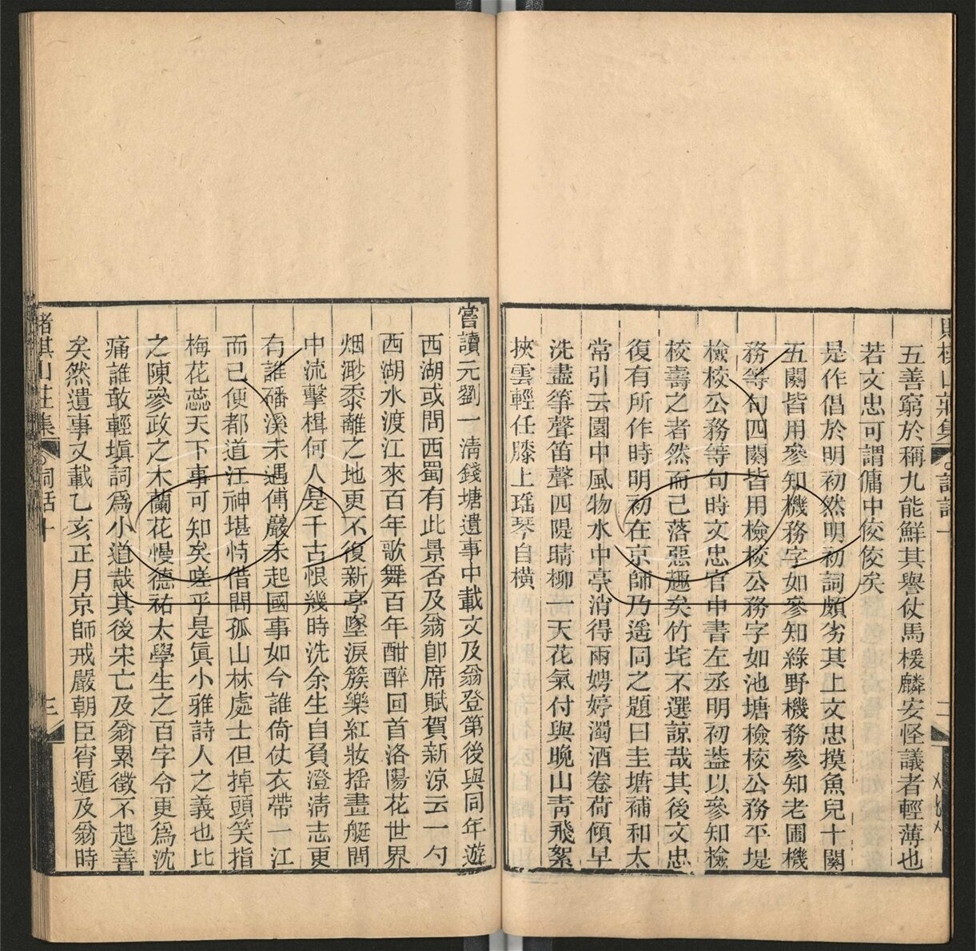 五善窮於稱九能鮮其譽仗馬楥麟安怪議者輕薄也
若文忠可謂傭中佼佼矣
是作倡於明初然明初詞頗劣其上文忠摸魚兒十闋
五闋皆用參知機務字如參知綠野機務參知老圃機
務等句四闋皆用檢校公務字如池塘檢校公務平堤
檢校公務等句時文忠官中書左丞明初葢以參知檢
校壽之者然而已落惡趣矣竹垞不選諒哉其後文忠
復有所作時明初在京師乃遥同之題曰圭塘補和太
常引云園中風物水中亭消得雨娉婷濁酒卷荷傾早
洗盡箏聲笛聲四隄晴柳一天花氣付與晚山靑飛絮
挾雲輕任膝上瑶琴自橫
嘗讀元劉一淸錢塘遺事中載文及翁登第後與同年遊
西湖或問西蜀有此景否及翁卽席賦賀新涼云一勺
西湖水渡江來百年歌舞百年酣醉回首洛陽花世界
烟渺黍離之地更不復新亭墜淚簇樂紅妝揺畫艇問
中流擊楫何人是千古恨幾時洗余生自負澄淸志更
有誰磻溪未遇傅巖未起國事如今誰倚仗衣帶一江
而已便都道江神堪恃借問孤山林處士但掉頭笑指
梅花蕊天下事可知矣嗟乎是眞小雅詩人之義也比
之陳參政之木蘭花慢德祐太學生之百字令更爲沈
痛誰敢輕塡詞爲小道哉其後宋亡及翁累徵不起善
矣然遺事又載乙亥正月京師戒嚴朝臣宵遁及翁時
山莊集
詞話一
二
賭棋山莊集
詞話十
三